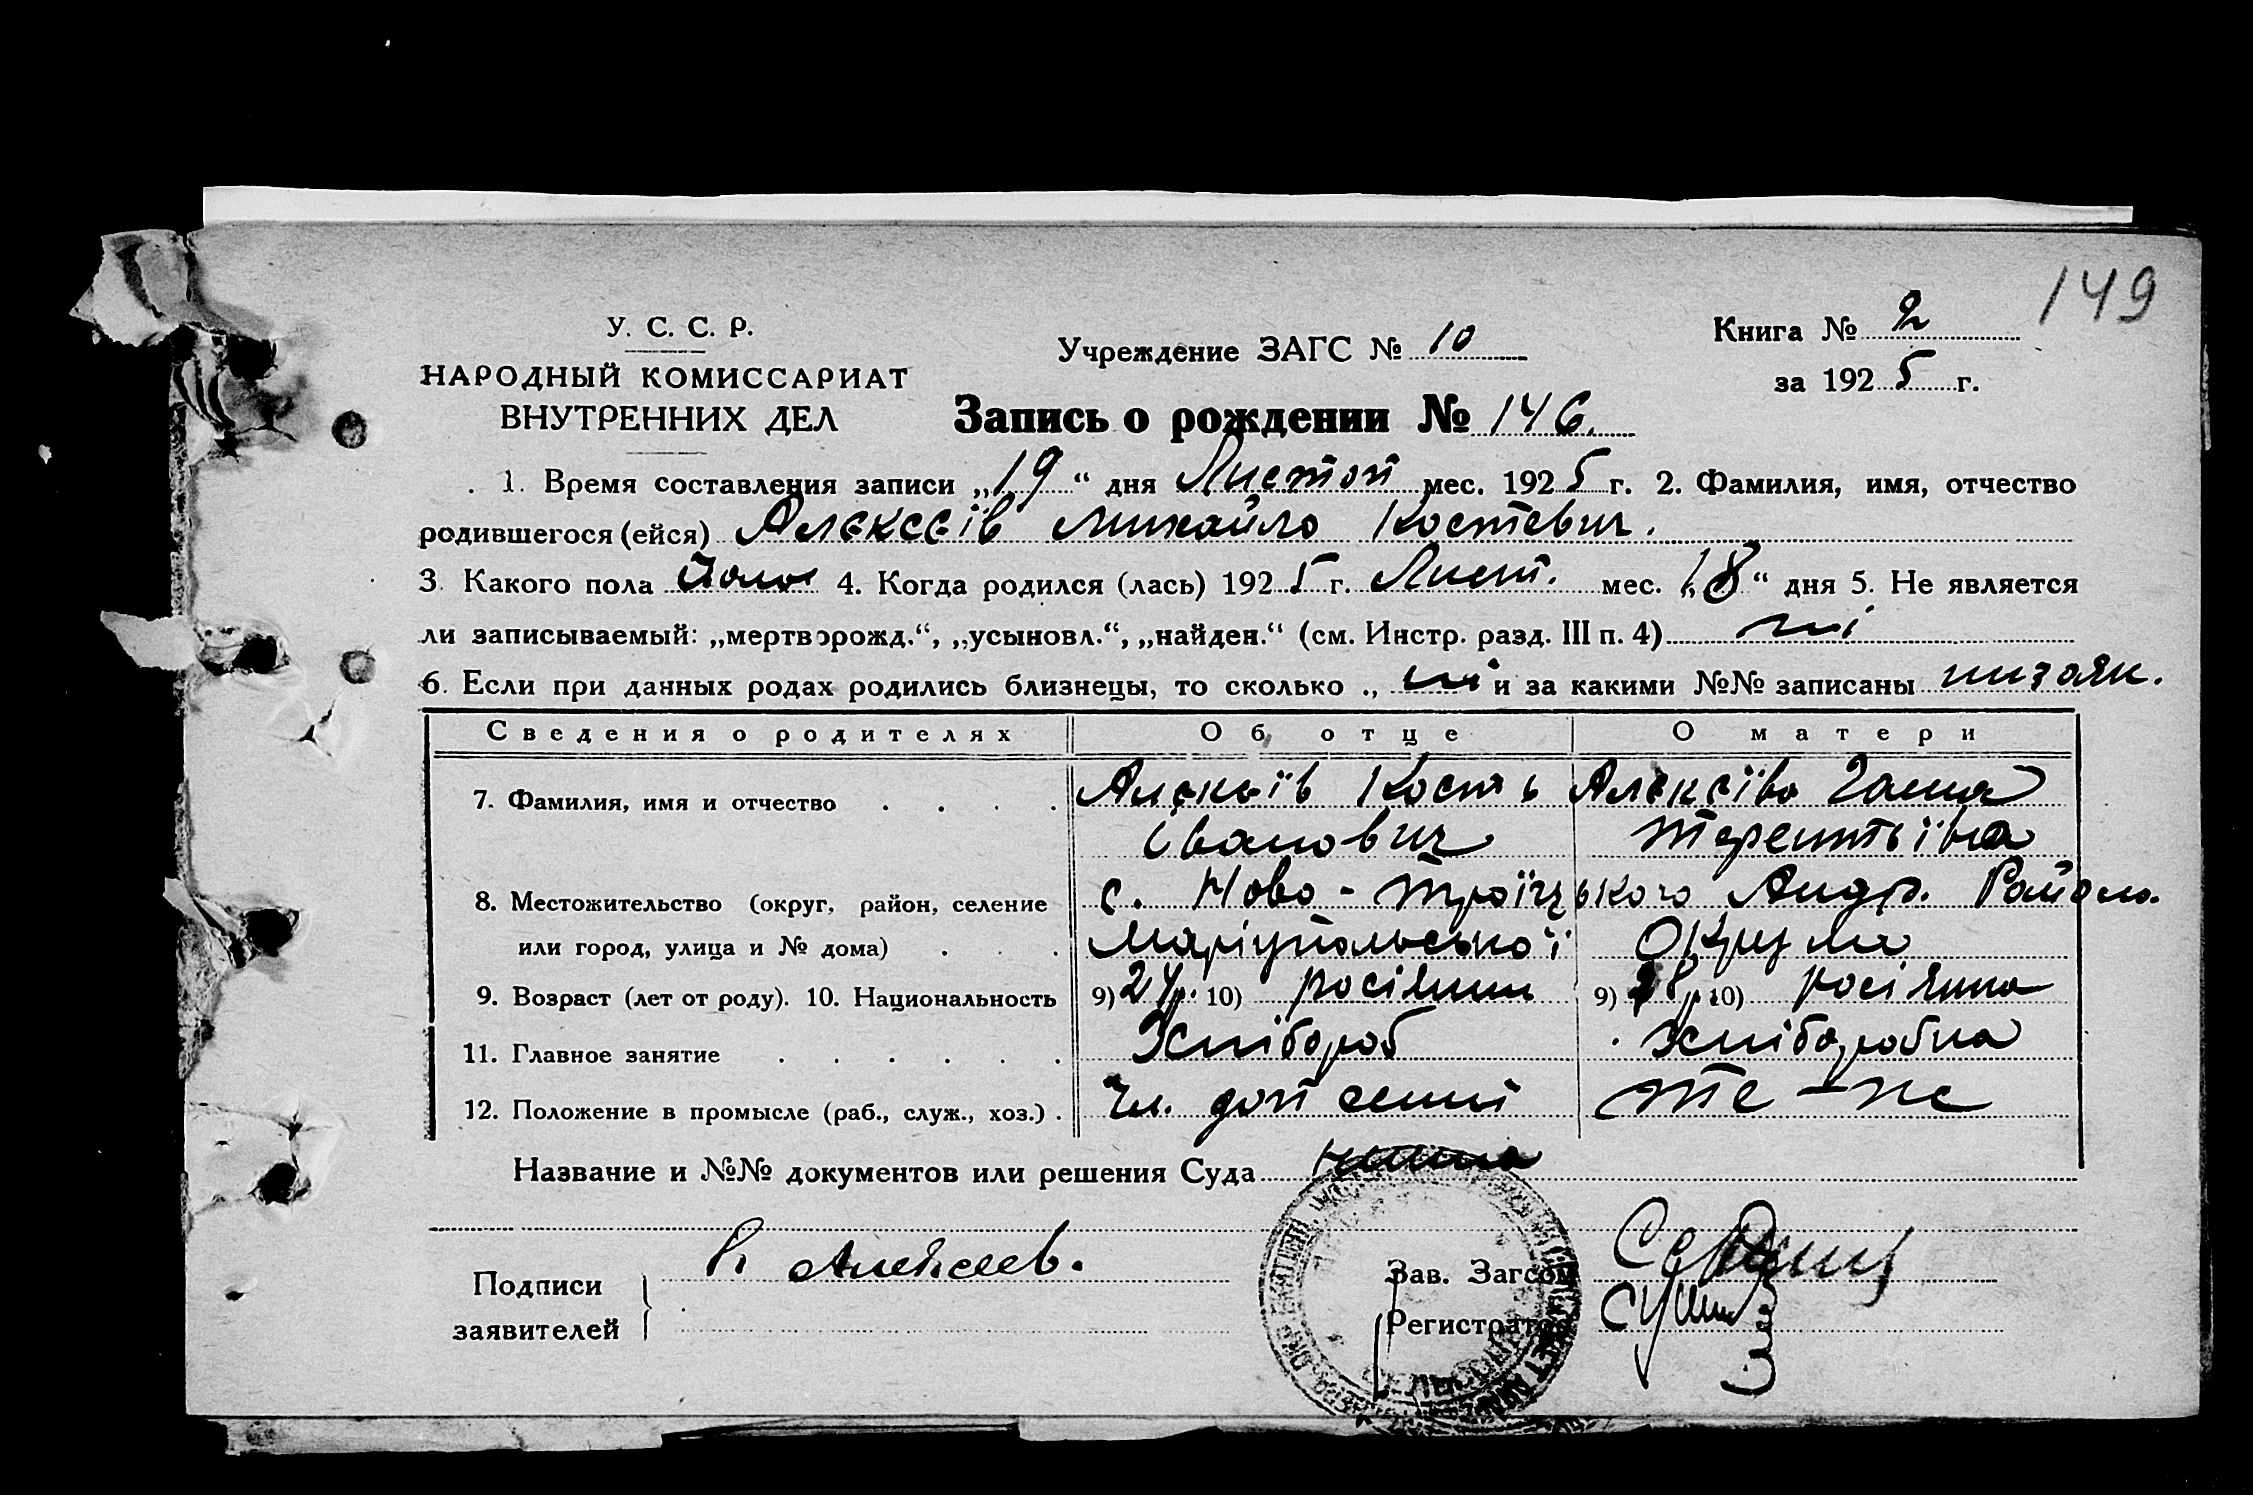 149
У. С. С. Р.
НАРОДНЫЙ КОМИССАРИАТ
ВНУТРЕННИХ ДЕЛ
Учреждение ЗАГС № 10
Книга № 2
за 1925 г.
Запись о рождении № 146.
1. Время составления записи „19“ дня Листоп мес. 1925 г. 2. Фамилия, имя, отчество
родившегося (ейся) Алєксєїв Михайло Костевич.
3. Какого пола 4. Когда родился (лась) 1925 г. Лист. мес. „18“ дня 5. Не является
ли записываемый: „мертворожд.“, „усыновл.“, „найден.“ (см. Инстр. разд. III п. 4) ні
6. Если при данных родах родились близнецы, то сколько ., ні и за какими №№ записаны
Сведения о родителях Об отце О матери
7. Фамилия, имя и отчество Алєксіїв Кость Алєксєїва Ганна
Іванович Терентьївна
8. Местожительство (округ, район, селение с. Ново-Троїцького Андр. Району
или город, улица и № дома) Маріупольської Округи
9. Возраст (лет от роду). 10. Национальность 9) 24 р. 10) росіянин 9) 28 р. 10) росіянка
11. Главное занятие Хлібороб Хліборобка
12. Положение в промысле (раб., служ., хоз.) . Чл. доп семї те-же
Название и №№ документов или решения Суда
Подписи
заявителей
К Алексеев.
Зав. Загсом
Регистратор